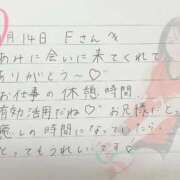 月14日 Fさんへ
あみに会いに来てくれて
ありがとう〜♡
お仕事の休憩時間
有効活用だね♡ お兄様だと、
癒しの時間になっていたら
とってもうれしいです